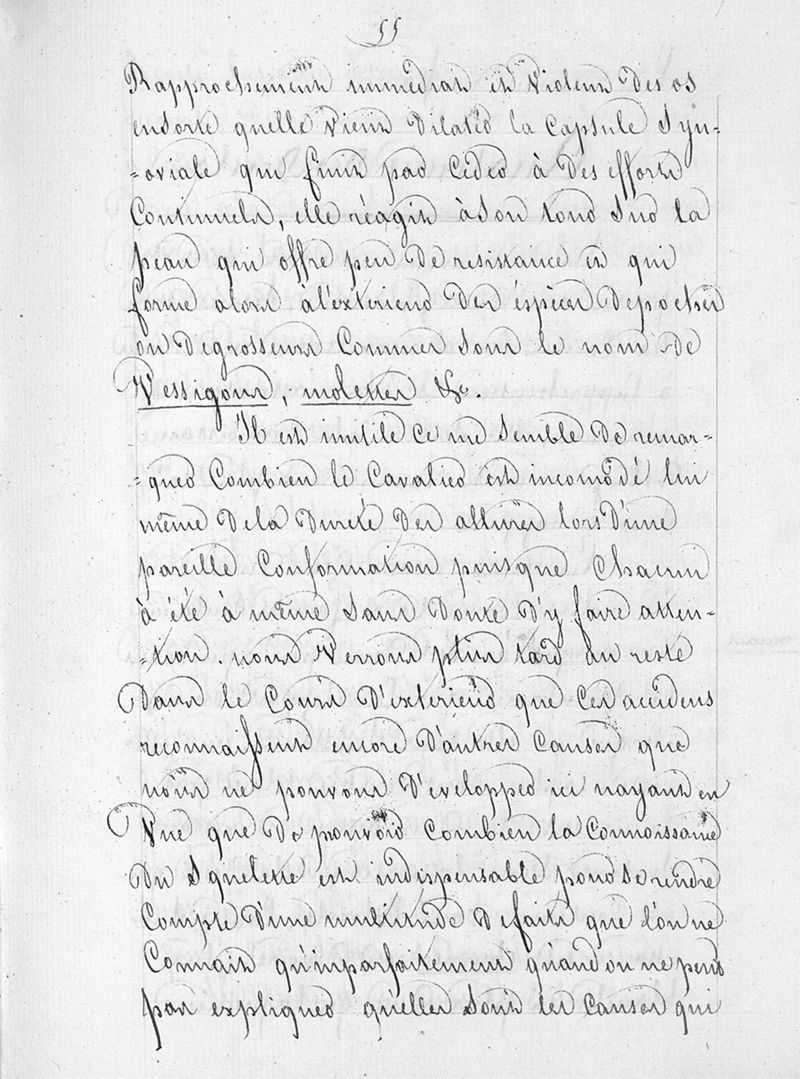 55
Rapprochement immédiat et violent des os
ensorte quelle vient dilater la capsule Syn-
-oviale qui finit par céder à des efforts
Continuels, elle réagit à son tour sur la
peau qui offre peu de resistance et qui
forme alors à l'exterieur des éspèces de poches
ou de grosseurs Connues sous le nom de
Vessigons, molettes &c.
Il est inutile ce me semble de remar-
-quer Combien le Cavalier est incomodé lui
même de la dureté des allures lors d'une
pareille Conformation puisque chacun
à été à même sans doute d'y faire atten-
-tion. nous Verrons plus tard au reste
Dans le Cours d'exterieur que ces accidens
reconnaissent encore d'autres causes que
nous ne pouvons d'evelopper ici nayant en
Vue que de pouvoir combien la Connoissance
Du Squelette est indispensable pour Se rendre
Compte d'une multitude de faits que l'on ne
Connait qu'imparfaitement quand on ne peut
pas expliquer quelles sont les Causes qui